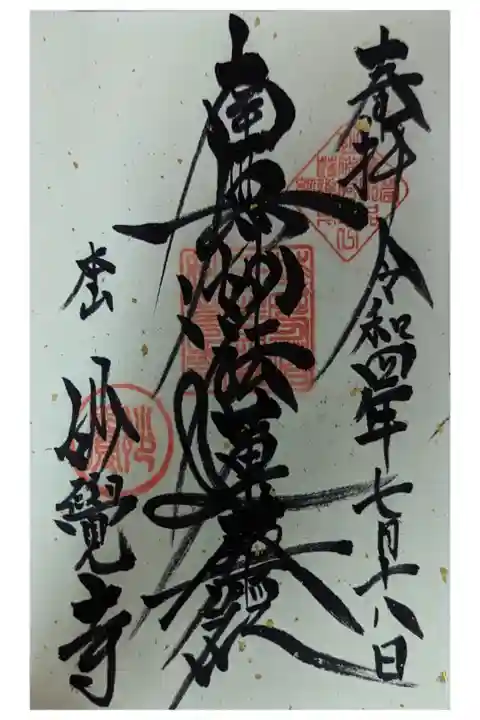 奉拝 令和四年七月十八日
南無妙法蓮華経
本山 妙覺寺